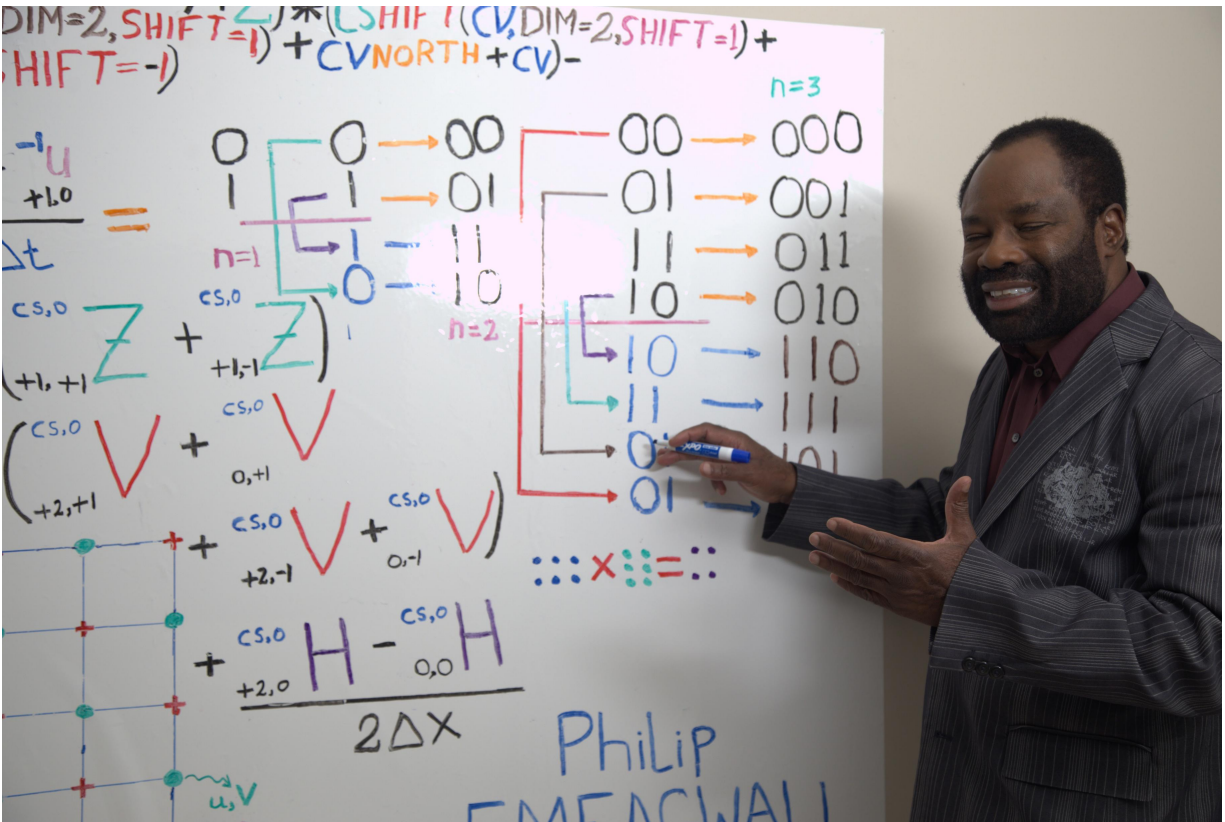 DIM=2, SHIFT=1) *(CSHIFT(CV,DIM=2,SHIFT=1)+
SHIFT=-1) + CVNORTH+CV)-
n=3
0 0 00 00 000
1 1 01 01 001
1 11 11 011
0 10 10 010
n=1
n=2
10 110
11 111
0 101
01
-1 u
+1,0
=
Δt
cs,0 Z + cs,0 Z)
(+1,+1 +1,-1
(cs,0 V + cs,0 V
+2,+1 0,+1
+ cs,0 V + cs,0 V)
+2,-1 0,-1
×
=
+ cs,0 H - cs,0 H
+2,0 0,0
2ΔX
u,V
PHiLip
EMEAGWALI
EXPO